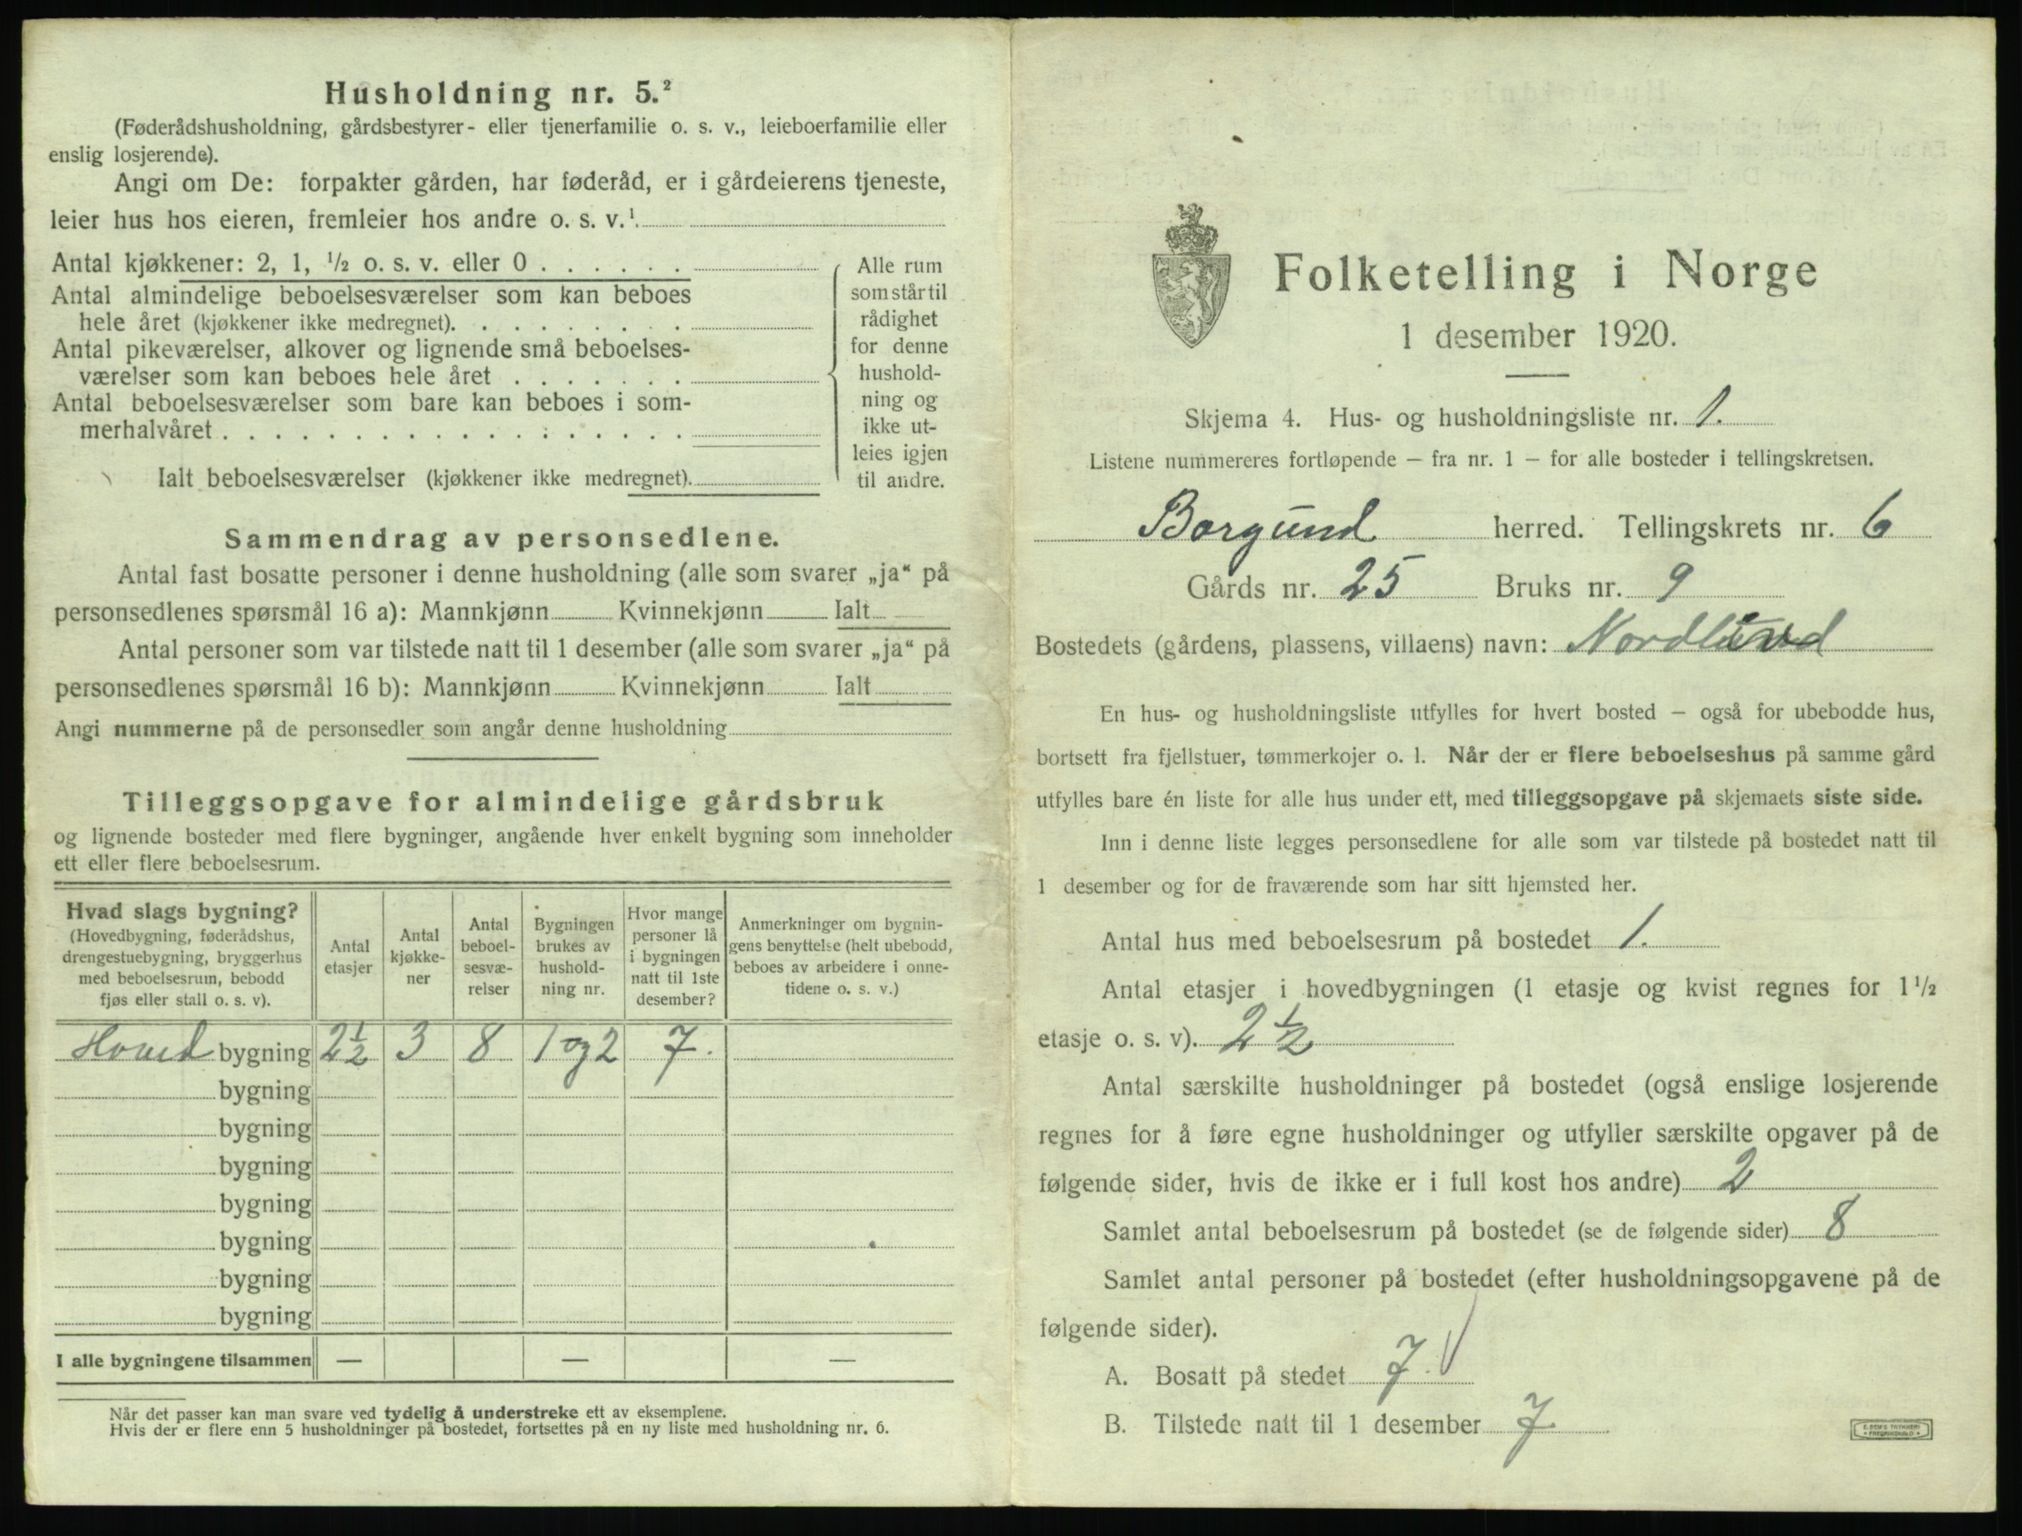 Husholdning nr. 5.²
(Føderådshusholdning, gårdsbestyrer- eller tjenerfamilie o. s. v., leieboerfamilie eller
enslig losjerende).
Angi om De: forpakter gården, har føderåd, er i gårdeierens tjeneste,
leier hus hos eieren, fremleier hos andre o. s. v.¹
Antal kjøkkener: 2, 1, ½ o. s. v. eller 0 . . . . . .
Antal almindelige beboelsesværelser som kan beboes
hele året (kjøkkener ikke medregnet). . . . . . . . .
Antal pikeværelser, alkover og lignende små beboelses-
værelser som kan beboes hele året . . . . . . .
Antal beboelsesværelser som bare kan beboes i som-
merhalvåret . . . . . . . . . . . . . . . . . .
Ialt beboelsesværelser (kjøkkener ikke medregnet).
Alle rum
som står til
rådighet
for denne
hushold-
ning og
ikke ut-
leies igjen
til andre.
Sammendrag av personsedlene.
Antal fast bosatte personer i denne husholdning (alle som svarer „ja“ på
personsedlenes spørsmål 16 a): Mannkjønn Kvinnekjønn Ialt
Antal personer som var tilstede natt til 1 desember (alle som svarer „ja“ på
personsedlenes spørsmål 16 b): Mannkjønn Kvinnekjønn Ialt
Angi nummerne på de personsedler som angår denne husholdning
Tilleggsopgave for almindelige gårdsbruk
og lignende bosteder med flere bygninger, angående hver enkelt bygning som inneholder
ett eller flere beboelsesrum.
Hvad slags bygning?
(Hovedbygning, føderådshus,
drengestuebygning, bryggerhus
med beboelsesrum, bebodd
fjøs eller stall o. s. v).
Antal
etasjer
Antal
kjøkke-
ner
Antal
beboel-
sesvæ-
relser
Bygningen
brukes av
hushold-
ning nr.
Hvor mange
personer lå
i bygningen
natt til 1ste
desember?
Anmerkninger om bygnin-
gens benyttelse (helt ubebodd,
beboes av arbeidere i onne-
tidene o. s. v.)
Hoved bygning 2½ 3 8 1 og 2 7.
bygning
bygning
bygning
bygning
bygning
bygning
bygning
I alle bygningene tilsammen — — —
Når det passer kan man svare ved tydelig å understreke ett av eksemplene.
Hvis der er flere enn 5 husholdninger på bostedet, fortsettes på en ny liste med husholdning nr. 6.
Folketelling i Norge
1 desember 1920.
Skjema 4. Hus- og husholdningsliste nr. 1.
Listene nummereres fortløpende – fra nr. 1 – for alle bosteder i tellingskretsen.
Borgund herred. Tellingskrets nr. 6
Gårds nr. 25 Bruks nr. 9
Bostedets (gårdens, plassens, villaens) navn: Nordlund
En hus- og husholdningsliste utfylles for hvert bosted – også for ubebodde hus,
bortsett fra fjellstuer, tømmerkojer o. l. Når der er flere beboelseshus på samme gård
utfylles bare én liste for alle hus under ett, med tilleggsopgave på skjemaets siste side.
Inn i denne liste legges personsedlene for alle som var tilstede på bostedet natt til
1 desember og for de fraværende som har sitt hjemsted her.
Antal hus med beboelsesrum på bostedet 1.
Antal etasjer i hovedbygningen (1 etasje og kvist regnes for 1½
etasje o. s. v). 2½
Antal særskilte husholdninger på bostedet (også enslige losjerende
regnes for å føre egne husholdninger og utfyller særskilte opgaver på de
følgende sider, hvis de ikke er i full kost hos andre) 2
Samlet antal beboelsesrum på bostedet (se de følgende sider) 8
Samlet antal personer på bostedet (efter husholdningsopgavene på de
følgende sider).
A. Bosatt på stedet 7.
B. Tilstede natt til 1 desember 7